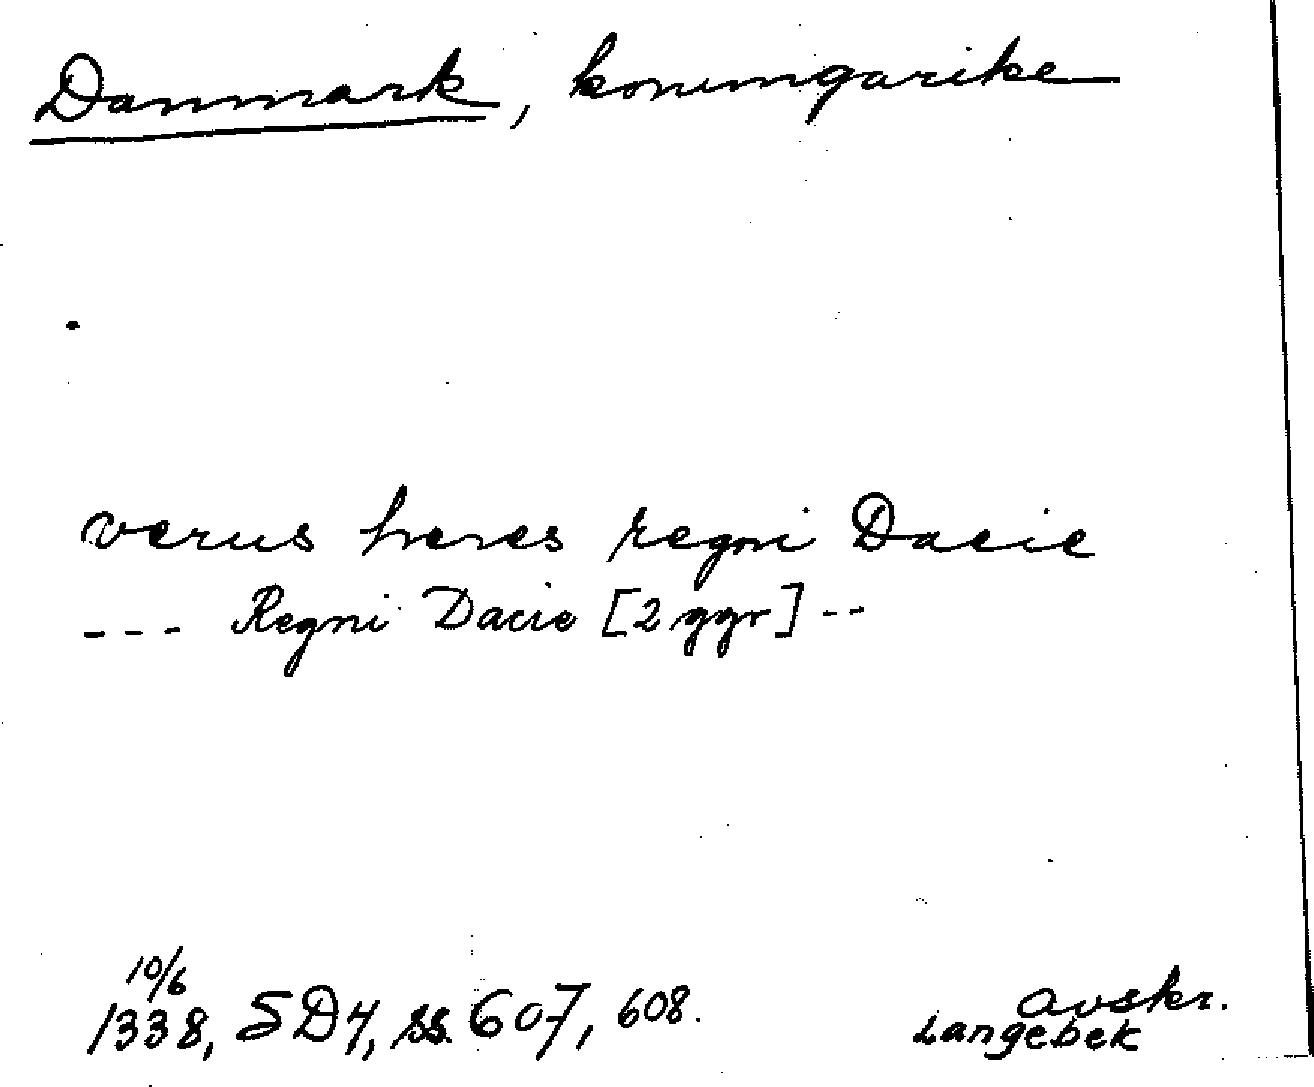 Danmark, konungarike
verus heres regni Dacie
--- Regni Dacie [2 ggr] --
10/6
1338, SD4, ss. 607, 608.
avskr.
Langebek